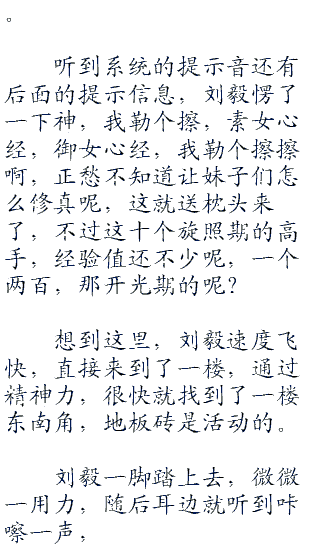 。
听到系统的提示音还有
后面的提示信息，刘毅愣了
一下神，我勒个擦，素女心
经，御女心经，我勒个擦擦
啊，正愁不知道让妹子们怎
么修真呢，这就送枕头来
了，不过这十个旋照期的高
手，经验值还不少呢，一个
两百，那开光期的呢？
想到这里，刘毅速度飞
快，直接来到了一楼，通过
精神力，很快就找到了一楼
东南角，地板砖是活动的。
刘毅一脚踏上去，微微
一用力，随后耳边就听到咔
嚓一声，